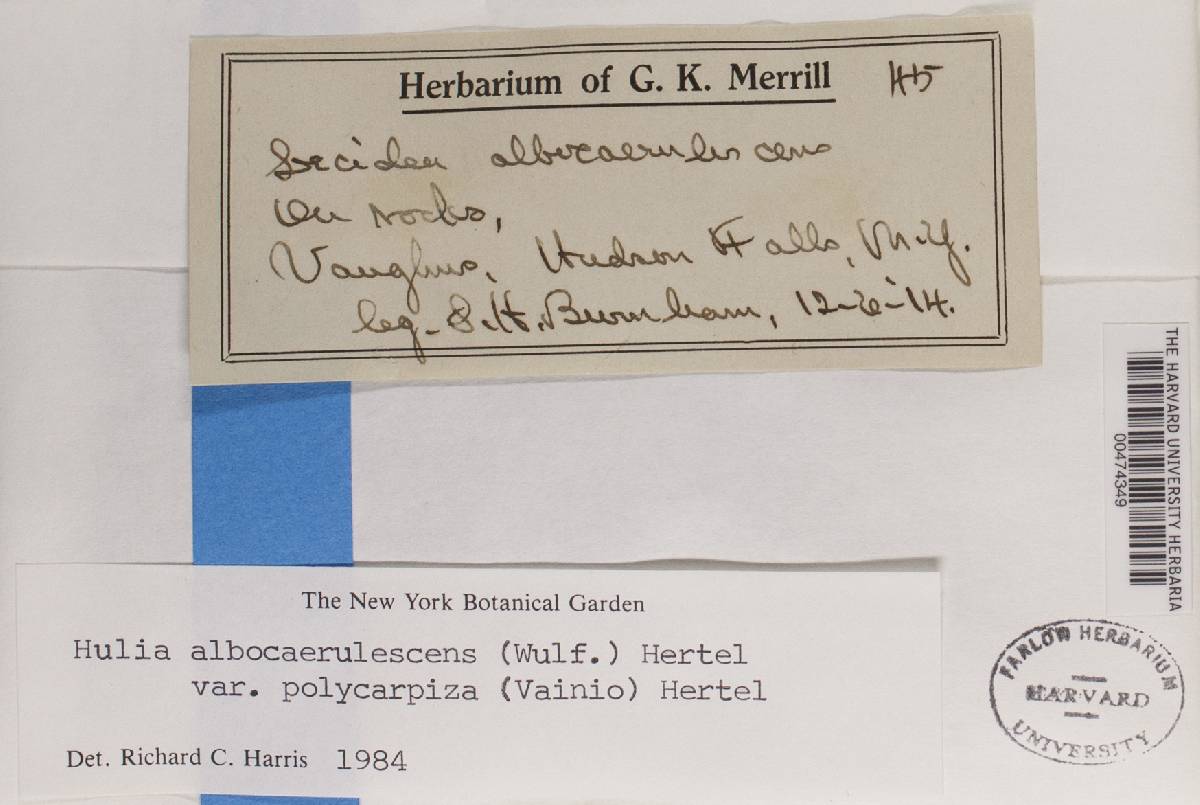 Herbarium of G. K. Merrill
Lecidea albocaerulescens
On rocks,
Vaughns, Hudson Falls, N.Y.
leg. S.H. Burnham, 12-6-14.
The New York Botanical Garden
Hulia albocaerulescens (Wulf.) Hertel
var. polycarpiza (Vainio) Hertel
Det. Richard C. Harris 1984
THE HARVARD UNIVERSITY HERBARIA
00474349
FARLOW HERBARIUM
HARVARD
UNIVERSITY